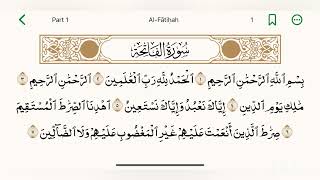 Part 1 Al-Fātiḥah 1
سُورَةُ الفَاتِحَةِ
بِسْمِ ٱللَّهِ ٱلرَّحْمَٰنِ ٱلرَّحِيمِ ١ ٱلْحَمْدُ لِلَّهِ رَبِّ ٱلْعَٰلَمِينَ ٢ ٱلرَّحْمَٰنِ ٱلرَّحِيمِ ٣
مَٰلِكِ يَوْمِ ٱلدِّينِ ٤ إِيَّاكَ نَعْبُدُ وَإِيَّاكَ نَسْتَعِينُ ٥ ٱهْدِنَا ٱلصِّرَٰطَ ٱلْمُسْتَقِيمَ
٦ صِرَٰطَ ٱلَّذِينَ أَنْعَمْتَ عَلَيْهِمْ غَيْرِ ٱلْمَغْضُوبِ عَلَيْهِمْ وَلَا ٱلضَّآلِّينَ ٧